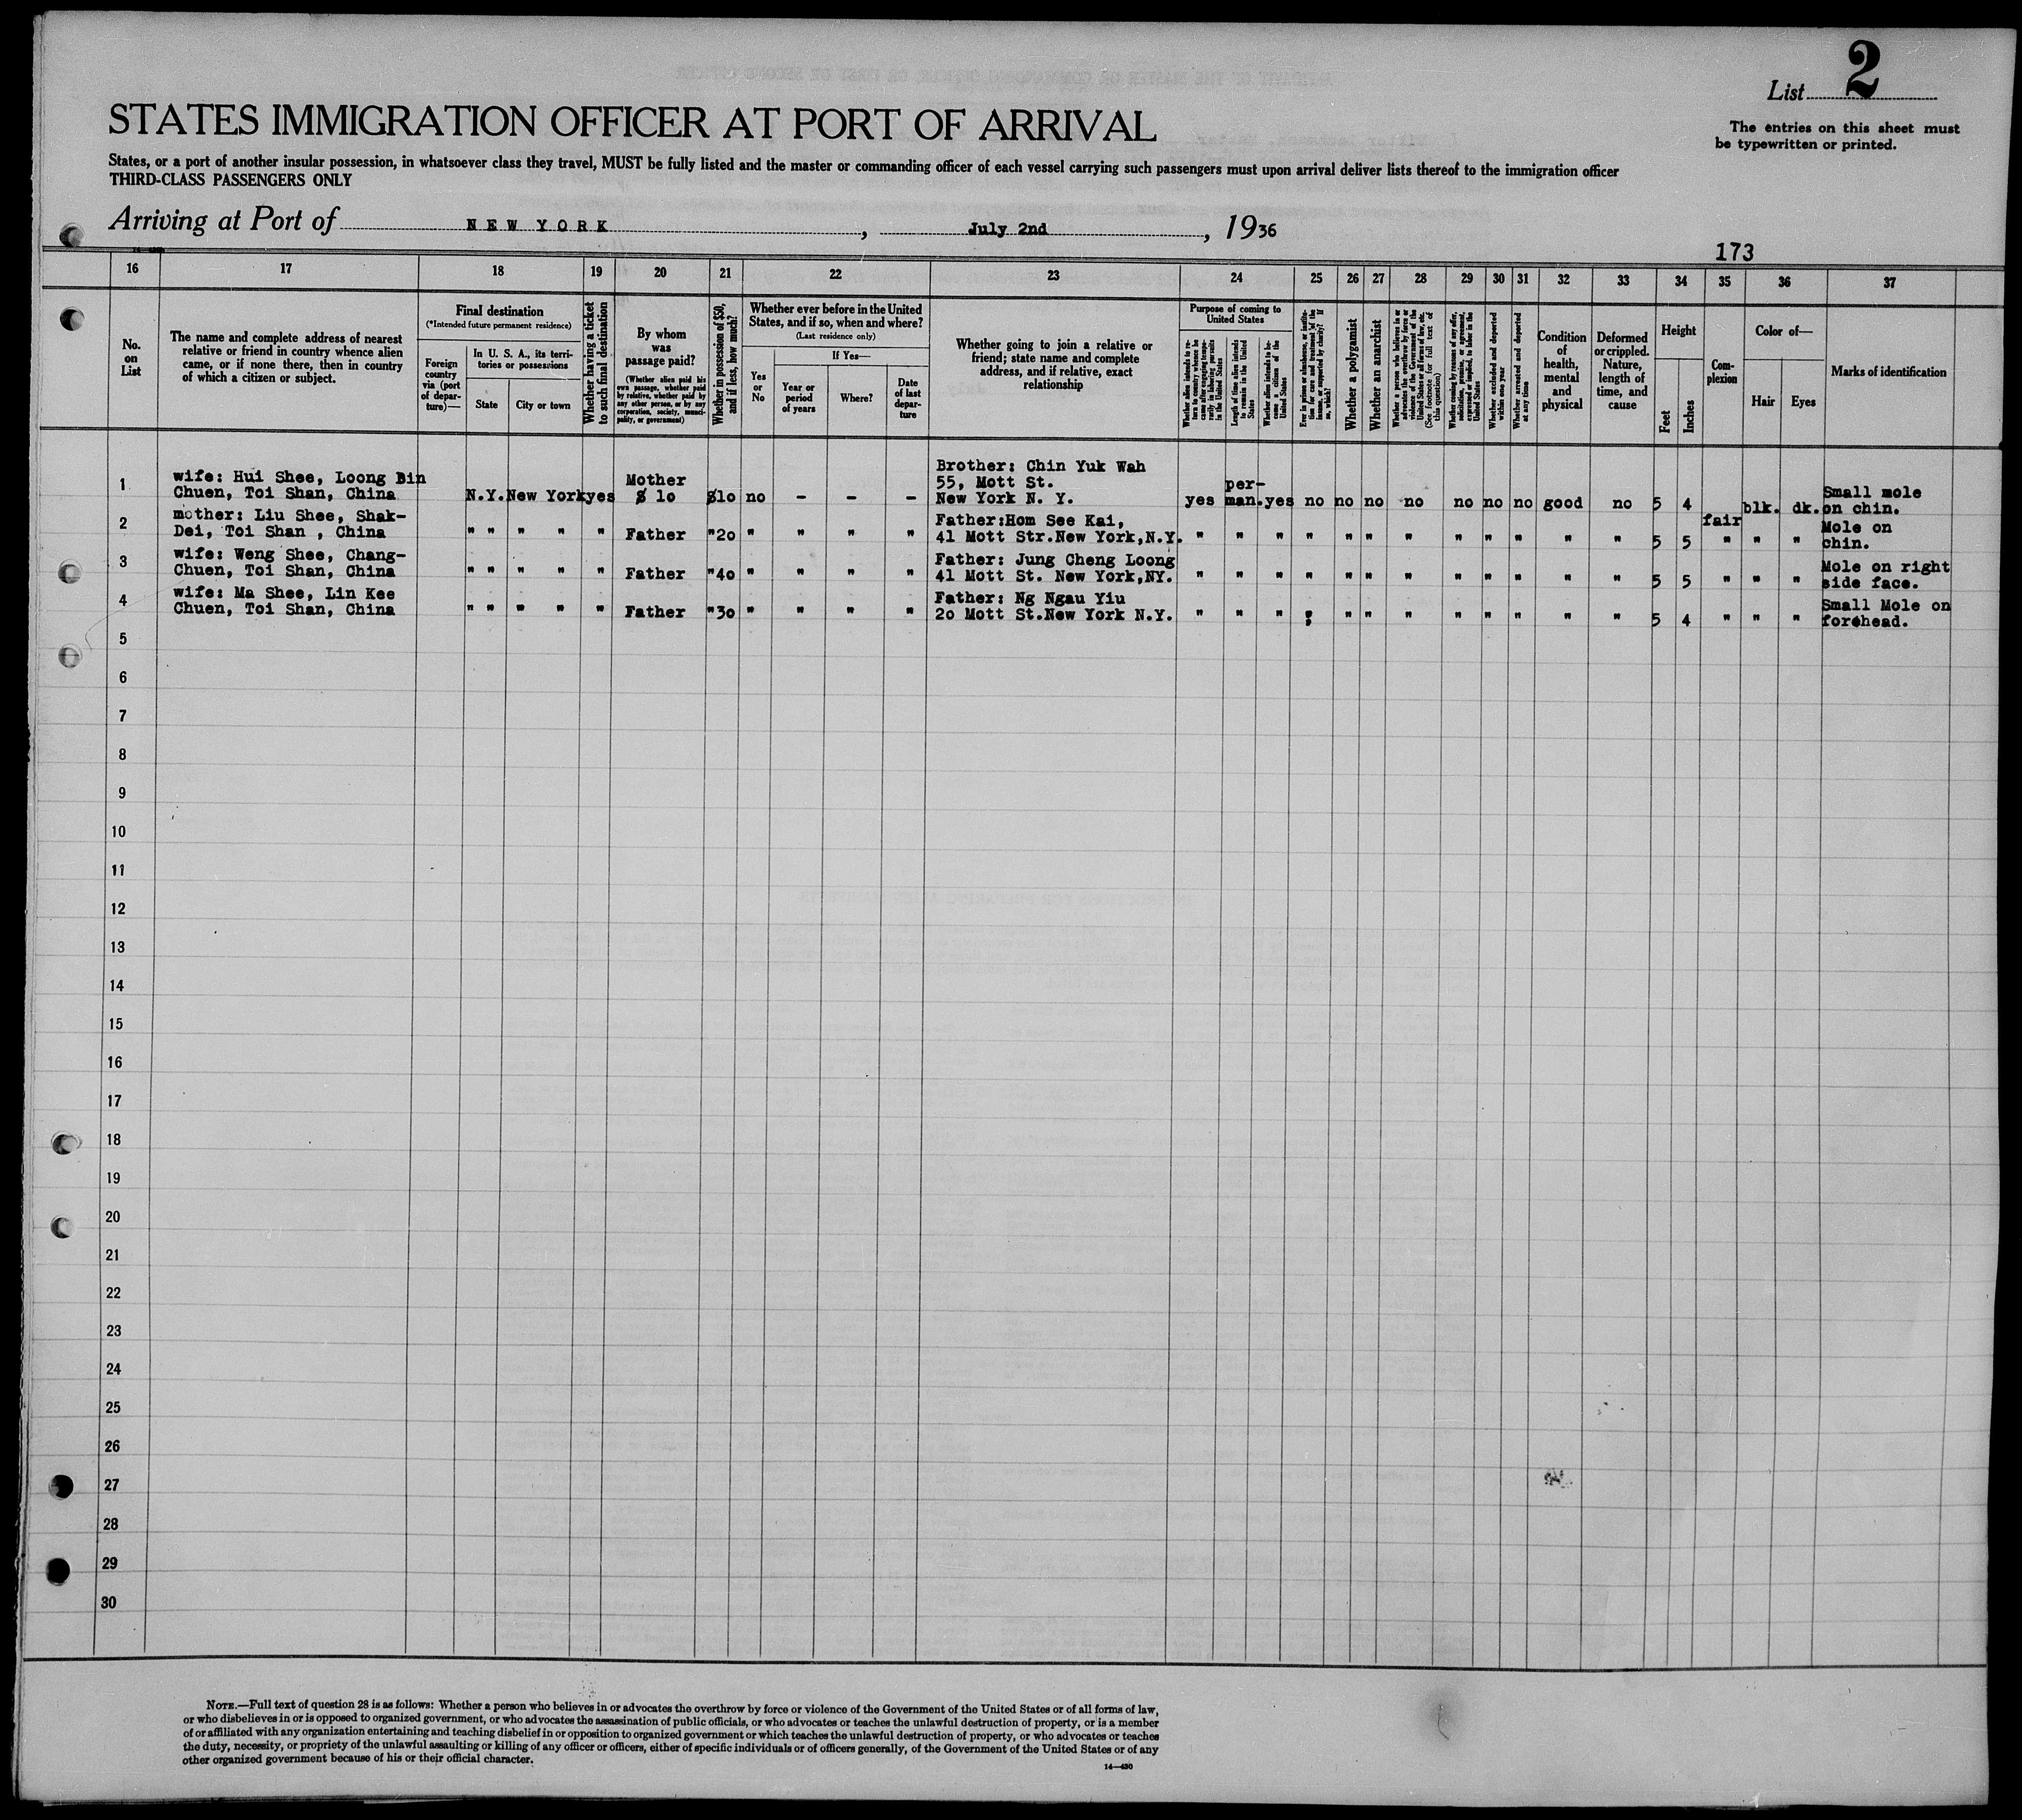 List 2
The entries on this sheet must
be typewritten or printed.
STATES IMMIGRATION OFFICER AT PORT OF ARRIVAL
States, or a port of another insular possession, in whatsoever class they travel, MUST be fully listed and the master or commanding officer of each vessel carrying such passengers must upon arrival deliver lists thereof to the immigration officer
THIRD-CLASS PASSENGERS ONLY
Arriving at Port of NEW YORK, July 2nd, 1936
173
16 17 18 19 20 21 22 23 24 25 26 27 28 29 30 31 32 33 34 35 36 37
No.
on
List
The name and complete address of nearest
relative or friend in country whence alien
came, or if none there, then in country
of which a citizen or subject.
Final destination
(*Intended future permanent residence)
Foreign
country
via (port
of depar-
ture)—
In U. S. A., its terri-
tories or possessions
State
City or town
Whether having a ticket
to such final destination
By whom
was
passage paid?
(Whether alien paid his
own passage, whether paid
by relative, whether paid by
any other person, or by any
corporation, society, munici-
pality, or government)
Whether in possession of $50,
and if less, how much?
Whether ever before in the United
States, and if so, when and where?
(Last residence only)
Yes
or
No
If Yes—
Year or
period
of years
Where?
Date
of last
depar-
ture
Whether going to join a relative or
friend; state name and complete
address, and if relative, exact
relationship
Purpose of coming to
United States
Whether alien intends to re-
turn to country whence he
came after engaging tempo-
rarily in laboring pursuits
in the United States
Length of time alien intends
to remain in the United
States
Whether alien intends to be-
come a citizen of the
United States
Ever in prison or almshouse, or institu-
tion for care and treatment of the
insane, or supported by charity? If
so, which?
Whether a polygamist
Whether an anarchist
Whether a person who believes in or
advocates the overthrow by force or
violence of the Government of the
United States or all forms of law, etc.
(See footnote for full text of
this question)
Whether coming by reasons of any offer,
solicitation, promise, or agreement,
expressed or implied, to labor in the
United States
Whether excluded and deported
within one year
Whether arrested and deported
at any time
Condition
of
health,
mental
and
physical
Deformed
or crippled.
Nature,
length of
time, and
cause
Height
Feet
Inches
Com-
plexion
Color of—
Hair
Eyes
Marks of identification
1 wife: Hui Shee, Loong Bin
Chuen, Toi Shan, China N.Y. New York yes Mother
$ 10 $10 no - - - Brother: Chin Yuk Wah
55, Mott St.
New York N. Y. yes per-
man. yes no no no no no no no good no 5 4 fair blk. dk. Small mole
on chin.
2 mother: Liu Shee, Shak-
Dei, Toi Shan , China " " " " " Father "20 " " " " Father:Hom See Kai,
41 Mott Str.New York,N.Y. " " " " " " " " " " " " 5 5 " " " Mole on
chin.
3 wife: Weng Shee, Chang-
Chuen, Toi Shan, China " " " " " Father "40 " " " " Father: Jung Cheng Loong
41 Mott St. New York,NY. " " " " " " " " " " " " 5 5 " " " Mole on right
side face.
4 wife: Ma Shee, Lin Kee
Chuen, Toi Shan, China " " " " " Father "30 " " " " Father: Ng Ngau Yiu
20 Mott St.New York N.Y. " " " ; " " " " " " " " 5 4 " " " Small Mole on
forehead.
5
6
7
8
9
10
11
12
13
14
15
16
17
18
19
20
21
22
23
24
25
26
27
28
29
30
NOTE.—Full text of question 28 is as follows: Whether a person who believes in or advocates the overthrow by force or violence of the Government of the United States or of all forms of law,
or who disbelieves in or is opposed to organized government, or who advocates the assassination of public officials, or who advocates or teaches the unlawful destruction of property, or is a member
of or affiliated with any organization entertaining and teaching disbelief in or opposition to organized government or which teaches the unlawful destruction of property, or who advocates or teaches
the duty, necessity, or propriety of the unlawful assaulting or killing of any officer or officers, either of specific individuals or of officers generally, of the Government of the United States or of any
other organized government because of his or their official character.
14—430